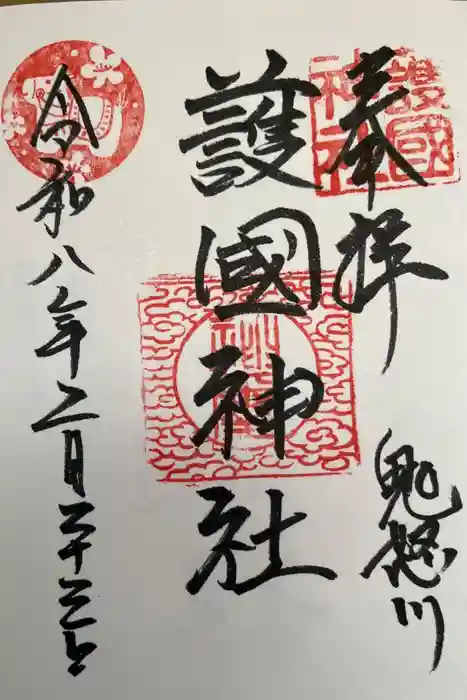 奉拝
鬼怒川
護國神社
令和八年二月二十三日
護國
神社